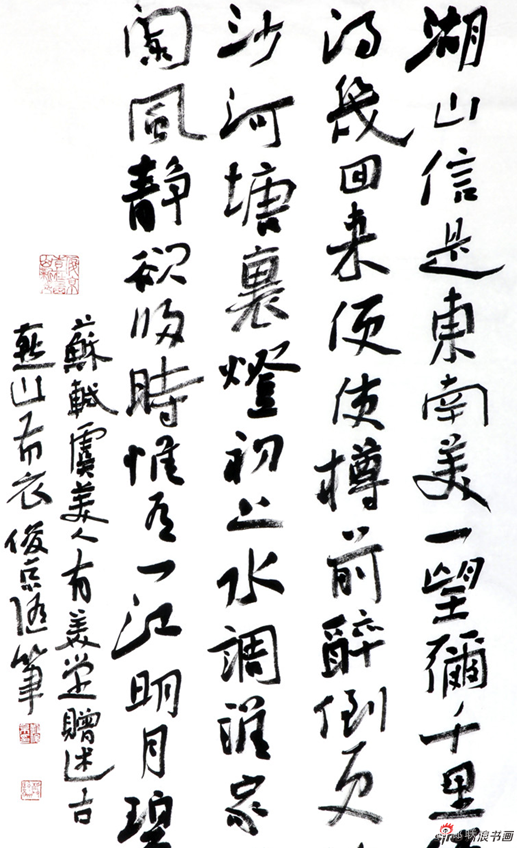 湖山信是東南美一望彌千里
得幾回来便使樽前醉倒更
沙河塘裏燈初上水調誰家
闌風静欲歸時惟有一江明月碧
蘇軾虞美人有美堂贈述古
燕山布衣俊京随筆
新浪书画